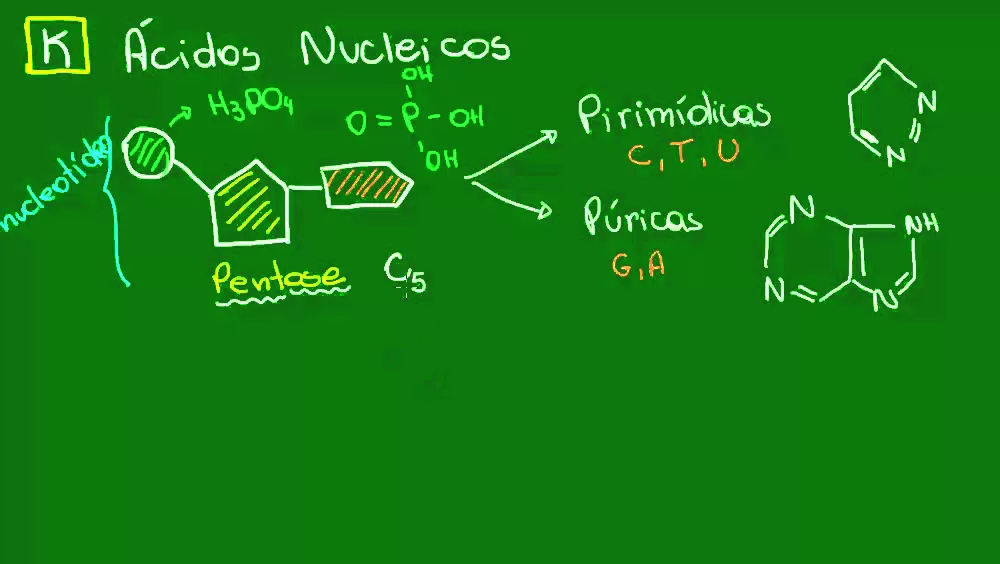 K Ácidos Nucleicos
nucleotídeo
H3PO4
OH
O=P-OH
OH
Pirimídicas
C, T, U
N
N
Púricas
G, A
N
NH
N
N
Pentose C5